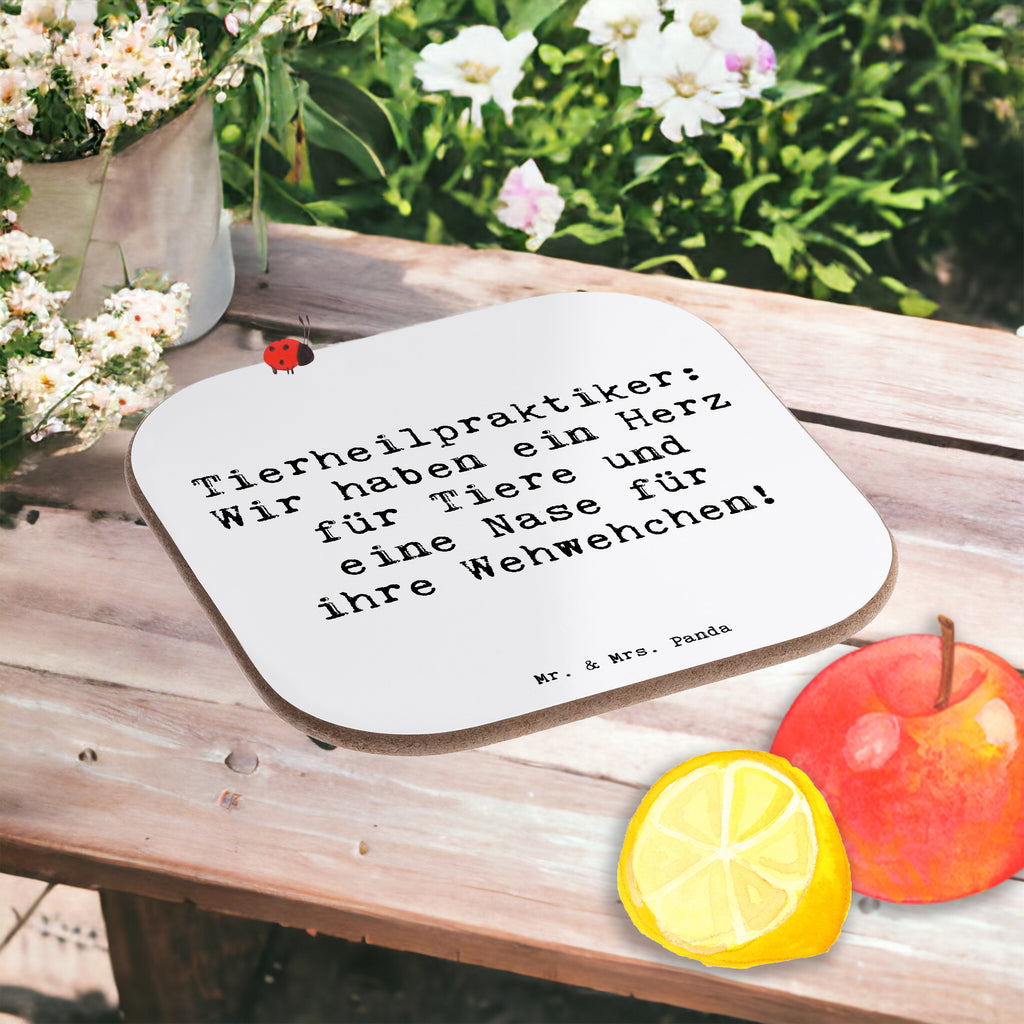 Tierheilpraktiker:
Wir haben ein Herz
für Tiere und
eine Nase für
ihre Wehwehchen!
Mr. & Mrs. Panda